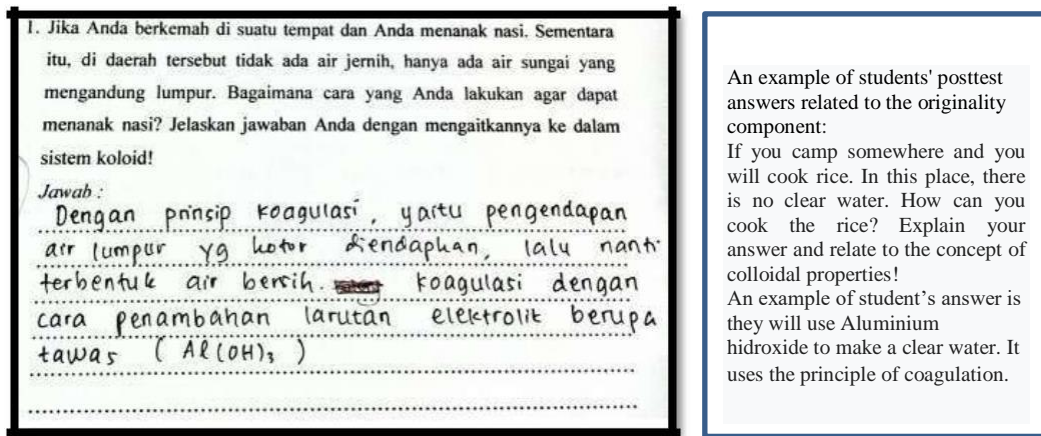 1. Jika Anda berkemah di suatu tempat dan Anda menanak nasi. Sementara
itu, di daerah tersebut tidak ada air jernih, hanya ada air sungai yang
mengandung lumpur. Bagaimana cara yang Anda lakukan agar dapat
menanak nasi? Jelaskan jawaban Anda dengan mengaitkannya ke dalam
sistem koloid!
Jawab :
Dengan prinsip koagulasi, yaitu pengendapan
air lumpur yg kotor diendapkan, lalu nanti
terbentuk air bersih. koagulasi dengan
cara penambahan larutan elektrolit berupa
tawas ( Al(OH)₃ )
An example of students' posttest
answers related to the originality
component:
If you camp somewhere and you
will cook rice. In this place, there
is no clear water. How can you
cook the rice? Explain your
answer and relate to the concept of
colloidal properties!
An example of student’s answer is
they will use Aluminium
hidroxide to make a clear water. It
uses the principle of coagulation.